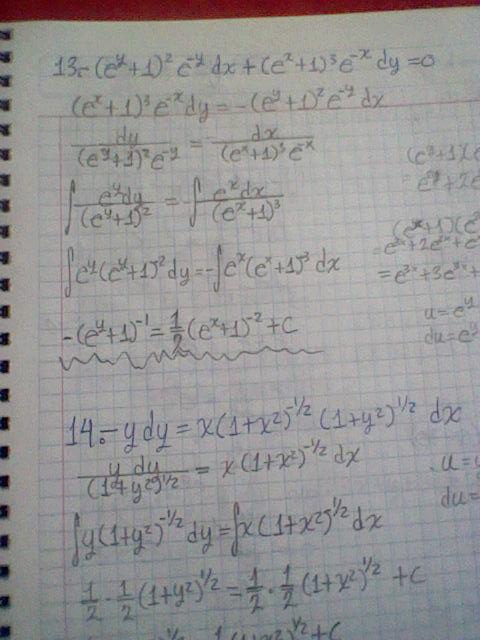 13.- (e^y+1)² e^-y dx + (e^x+1)³ e^-x dy = 0
(e^x+1)³ e^-x dy = -(e^y+1)² e^-y dx
dy/((e^y+1)² e^-y) = - dx/((e^x+1)³ e^-x)
∫ e^y dy/(e^y+1)² = ∫ e^x dx/(e^x+1)³
∫ e^y (e^y+1)^-2 dy = -∫ e^x (e^x+1)^-3 dx
-(e^y+1)^-1 = 1/2 (e^x+1)^-2 + C
u = e^y
du = e^y
14.- y dy = x(1+x²)^-1/2 (1+y²)^1/2 dx
y dy/(1+y²)^1/2 = x(1+x²)^-1/2 dx
∫ y(1+y²)^-1/2 dy = ∫ x(1+x²)^-1/2 dx
du =
1/2 · 1/2 (1+y²)^1/2 = 1/2 · 1/2 (1+x²)^1/2 + C